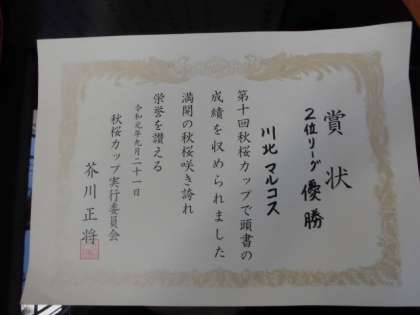 賞状
2位リーグ 優勝
川北 マルコス
第十回秋桜カップで頭書の
成績を収められました
満開の秋桜咲き誇れ
栄誉を讃える
令和元年九月二十一日
秋桜カップ実行委員会
芥川正将